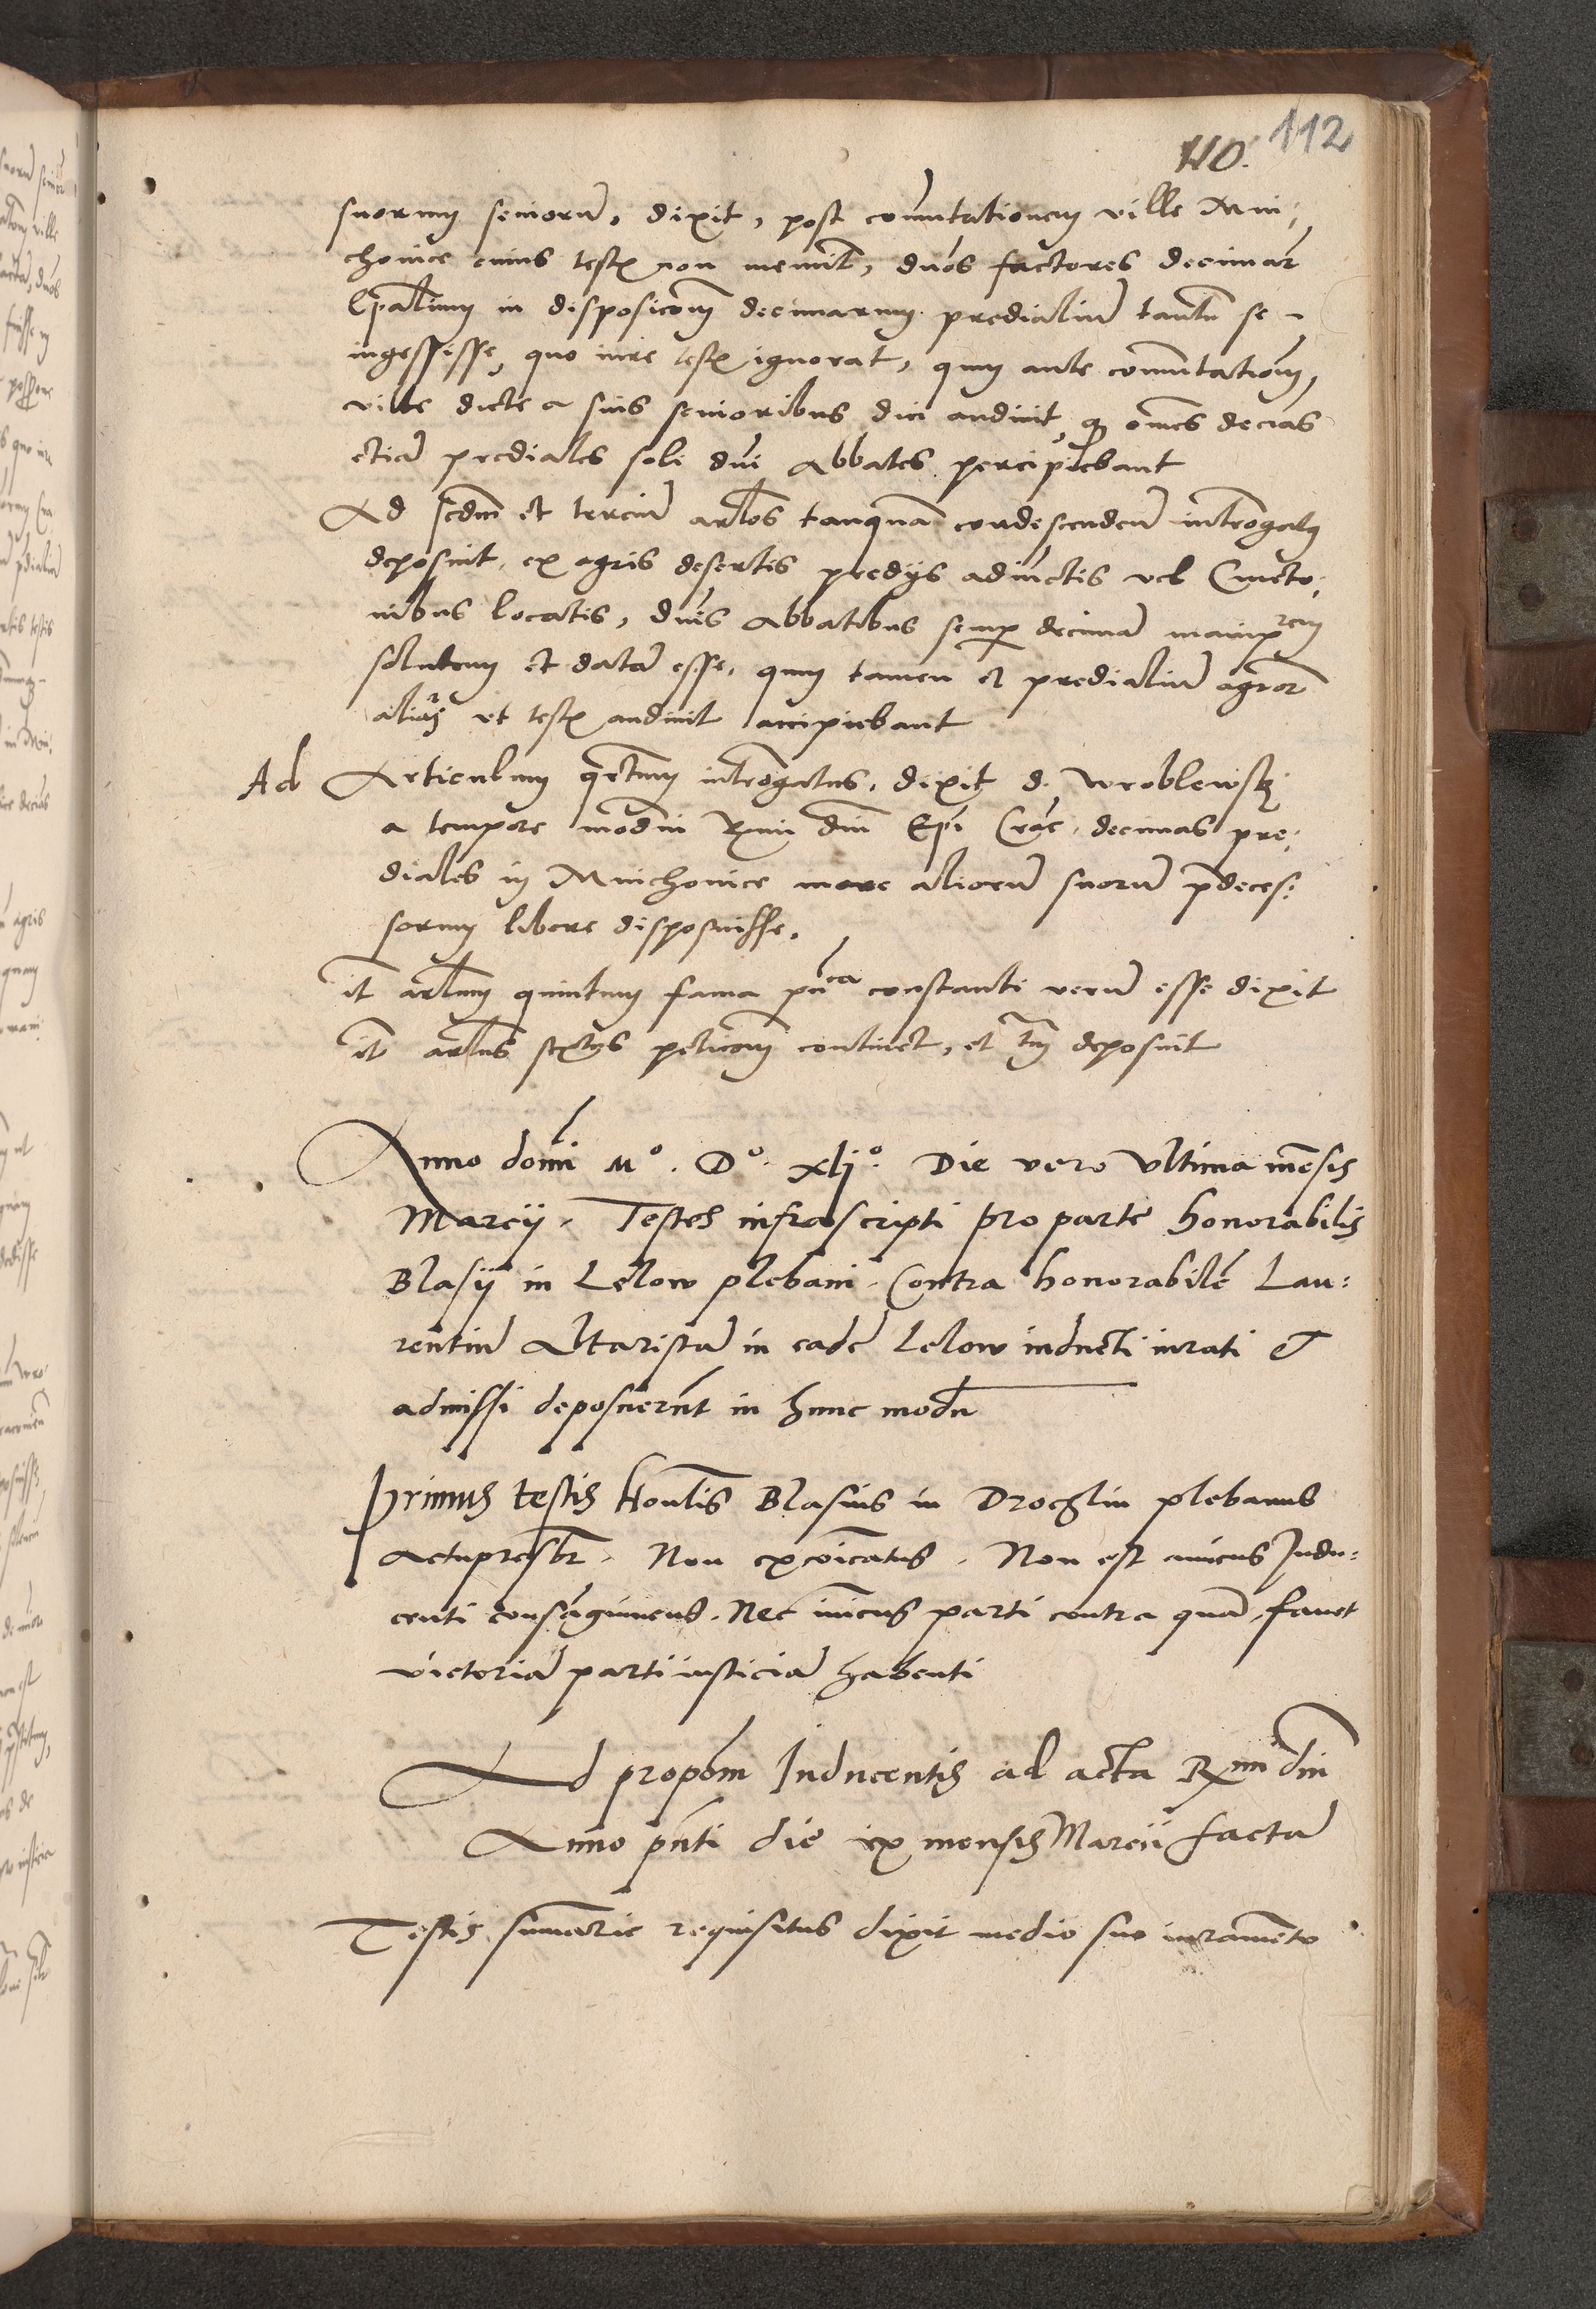 110. 112
suorum senioru, dixit, post comutationem ville Mni:
chovice cuius testis non meminit, duos factores decimar
Epalium in disposicom decimarum predialiu tantu se
ingessisse, quo iure testis ignorat, quum ante comutationem,
ville dicte a suis senioribus dici audivit, q omes decias
etia prediales soli dni Abbates percipiebant
Ad scdm et terciu arlos tanqua condescendeñ introgatus
deposuit, ex agris desertis predys adiunctis vel Cmeto:
nibus locatis, dnis Abbatibus semp decima
solutam et data esse, quum tamen et predialiu agror
alias ut testis audivit accipiebant
Ad Articulum qrtum introgatus, dixit d. Wroblewsky
a tempore modrni Rmi dni Epi Crac, decimas pre:
diales in Mnichovice more alioru suoru pdeces:
sorum libere disposuisse.
it arlum quintum fama pnca constanti veru esse dixit
it arlus sextus peticom continet, et tm deposuit
Anno domi Mo. Do. xljo. Die vero Ultima mensis
Marcij. Testes infrascripti pro parte honorabilis
Blasij in Lelow plebani. Contra honorabile Lau:
rentiu Altarista in eade Lelow inducti iurati et
admissi deposuerut in hunc modu
Primus testis Honlis Blasius in Drochlin plebanus
Actupresbr. Non excoicatus. Non est amicus Indu:
centi consaguineus. Nec inimicus parti contra qua, favet
victoria parti iusticia habenti
Ad propom Inducentis ad acta Rmi dni
Anno pnti die ix mensis Marcii facta
Testis sumarie requisitus dixit medio suo iuramento